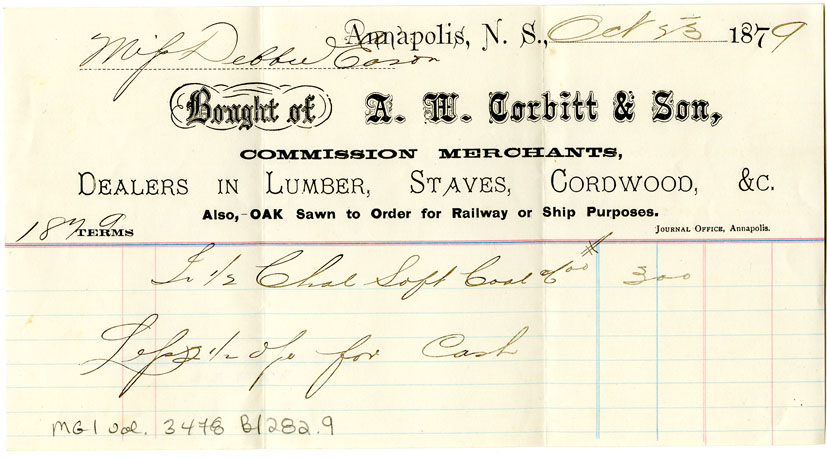 Annapolis, N. S., Oct 23 1879
Miss Debbie Eason
Bought of A. W. Corbitt & Son,
COMMISSION MERCHANTS,
DEALERS IN LUMBER, STAVES, CORDWOOD, &C.
Also, OAK Sawn to Order for Railway or Ship Purposes.
JOURNAL OFFICE, Annapolis.
1879 TERMS
1/2 Chal Soft Coal 6 00 # 3 00
Less 2 1/2 o/o for Cash
MG1 vol. 3478 B1282.9